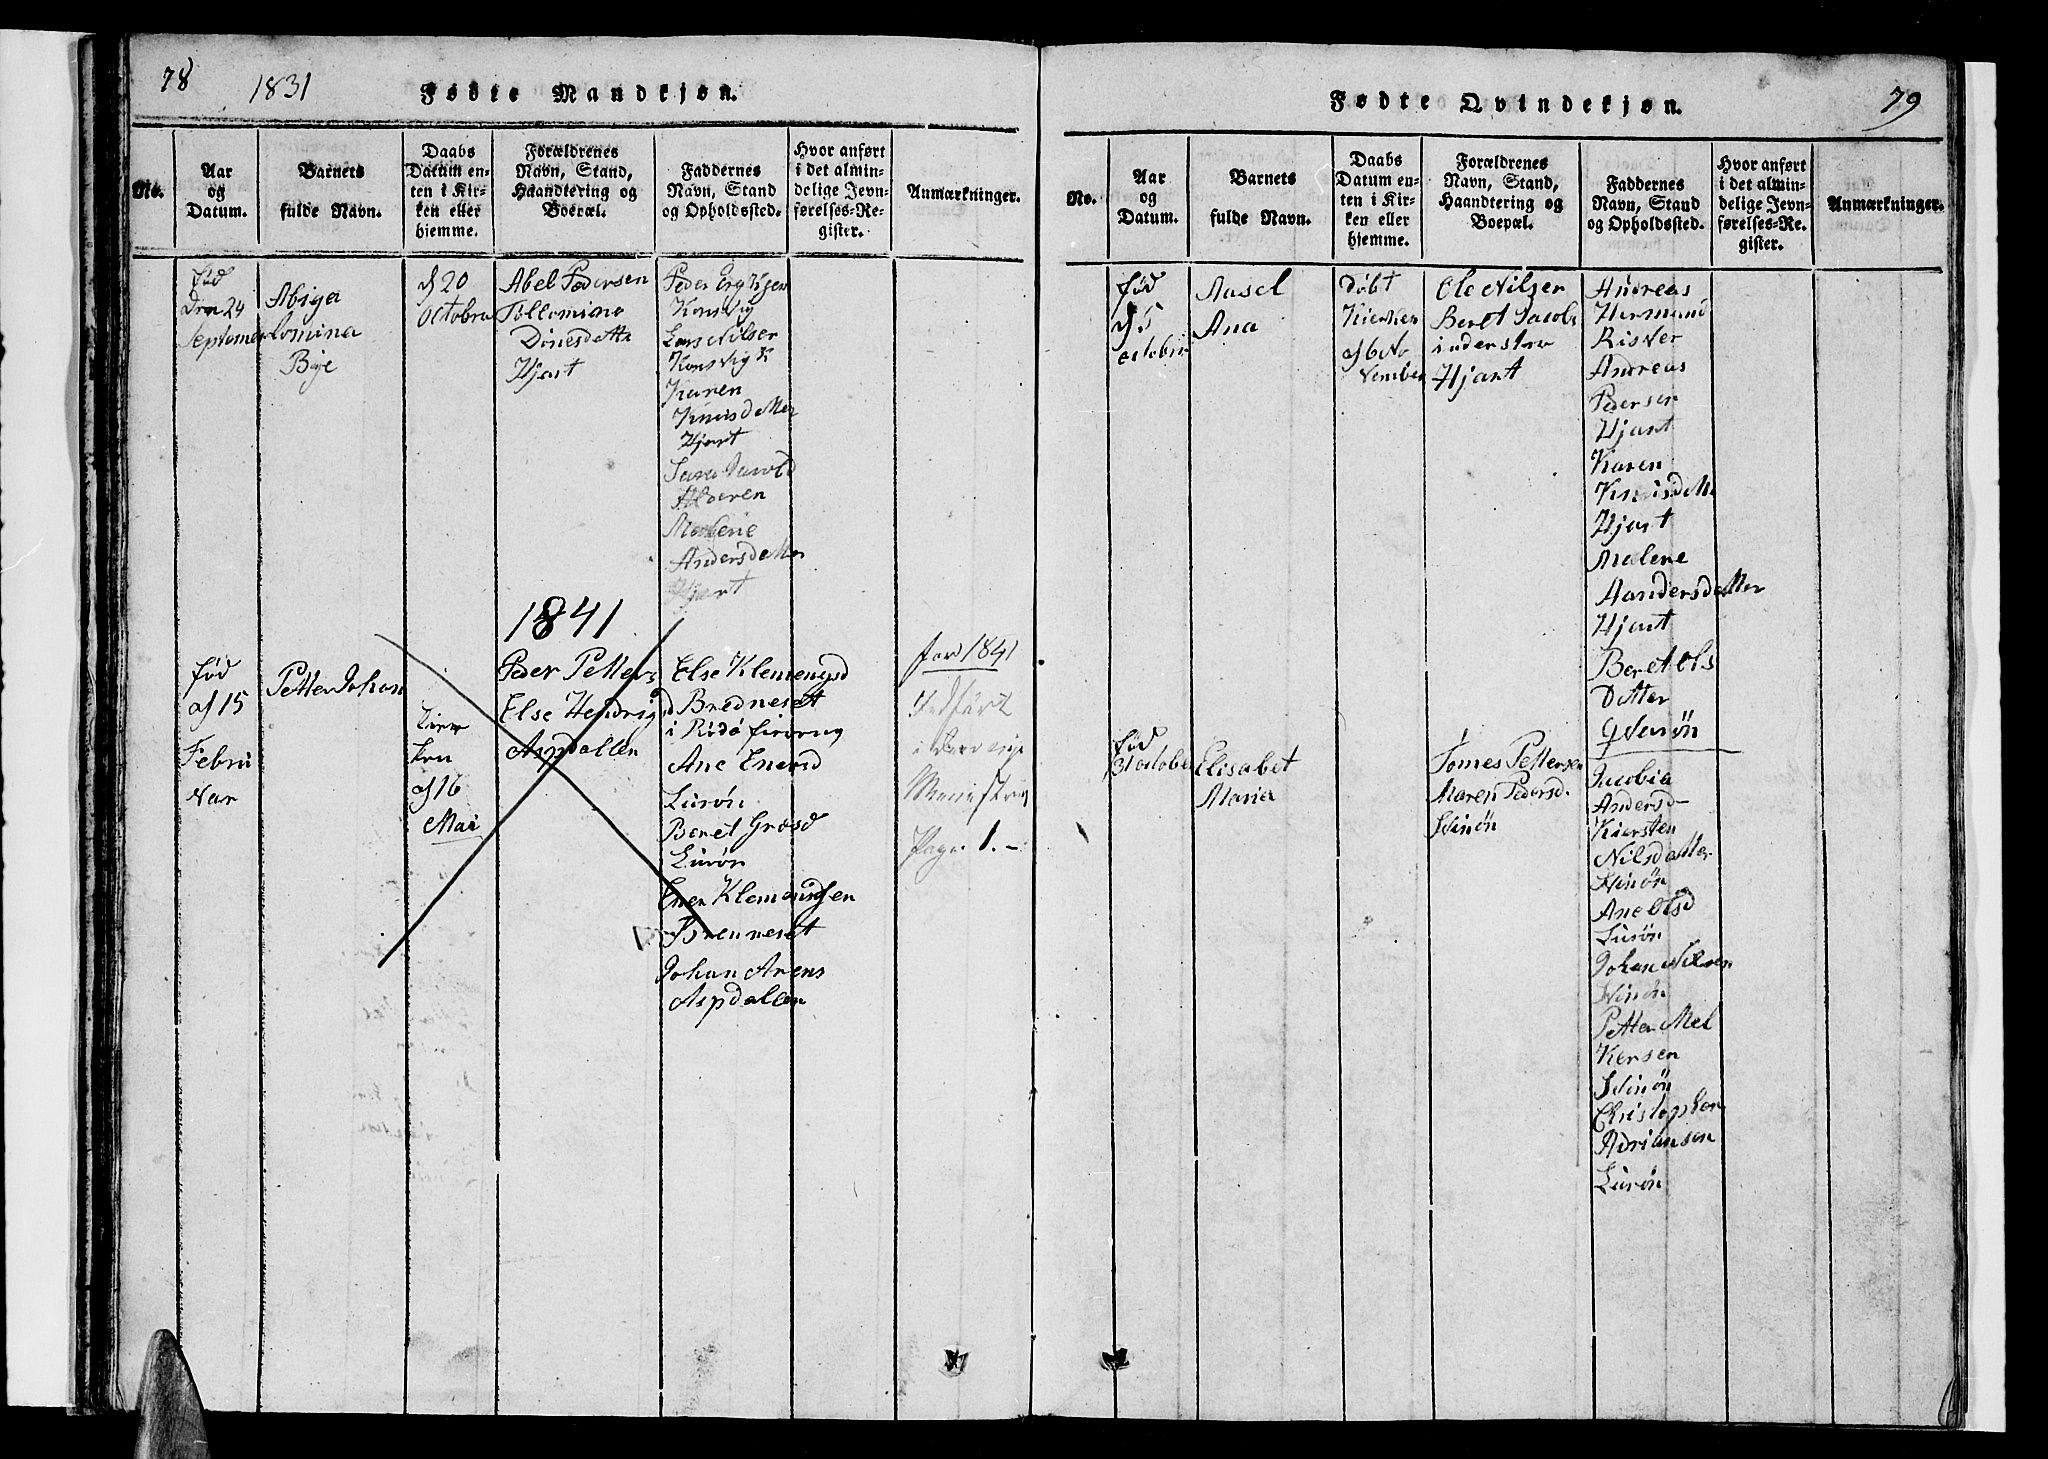 78
1831
Fødte Mandkjøn.
No.
Aar
og
Datum.
Barnets
fulde Navn.
Daabs
Datum en-
ten i Kir-
ken eller
hjemme.
Forældrenes
Navn, Stand,
Haandtering og
Boepæl.
Faddernes
Navn, Stand
og Opholdssted.
Hvor anført
i det almin-
delige Jevn-
førelses-Re-
gister.
Anmærkninger.
fød
Den 24
Septemer
Abiga
lomina
Bije
d 20
Octobro
Abel Pedersen
Tollomine
Hjart
Peder
Konsvig
Lars Nilser
Konsvig
Karen
Knusdatter
Hjart
Sara
Malene
Andersdatter
Hjart
1841
fød
d 15
Febru
Var
Petter Johan
d 16
Mai
Peder Petters
Else Hendrigsd
Aspdallen
Else Klemengsd
Bredneset
i Rødø
Ane Enersd
Lurøn
Beret
Lurøn
Ener Klemendsen
Brenneset
Johan Arens
Aspdallen
for 1841
Indført
i
Page. 1. -
Fødte Qvindekjøn.
79
No.
Aar
og
Datum.
Barnets
fulde Navn.
Daabs
Datum en-
ten i Kir-
ken eller
hjemme.
Forældrenes
Navn, Stand,
Haandtering og
Boepæl.
Faddernes
Navn, Stand
og Opholdssted.
Hvor anført
i det almin-
delige Jevn-
førelses-Re-
gister.
Anmærkninger.
fød
d 5
octobr
Aasel
Ana
Døbt
Kierken
d 6 No
Vember
Ole Nilsen
Beret Jacobs
Hjart
Andreas
Hermand
Risver
Andreas
Pedersen
Hjart
Karen
Knusdatt
Hjart
Malene
Aandersdatter
Hjart
Beret Ols
Datter
fød
31 octobe
Elisabet
Maria
Tomes Pettersen
Maren Pedersd.
Svinøn
Jacobia
Andersd
Kiersten
Nilsdatter
Svinøn
Ane Olsd
Lurøn
Johan Nilsen
Svinøn
Petter Mel
Kersen
Svinøn
Christopher
Adriansen
Lurøn